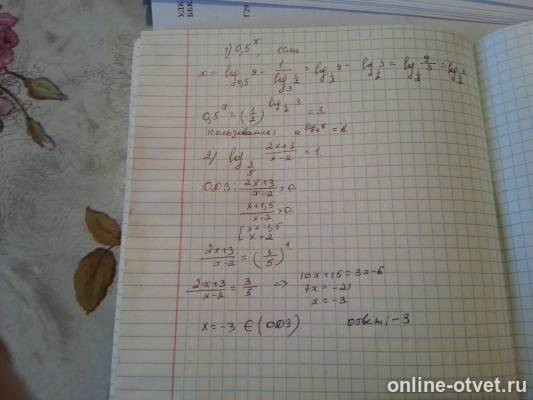 1) 0,5^x, если
x = log_{0,5} 9 - 1/log_3 1/2 = log_{1/2} 9 - log_{1/2} 3 = log_{1/2} 9/3 = log_{1/2}
0,5^x = (1/2)^{log_{1/2} 3} = 3
a^{log_a b} = b
2) log_{3/5} (2x+3)/(x-2) = 1
ОДЗ: (2x+3)/(x-2) > 0
(x+1,5)/(x-2) > 0
[x<-1,5
x>2
(2x+3)/(x-2) = (3/5)^1
(2x+3)/(x-2) = 3/5 => 10x+15 = 3x-6
7x = -21
x = -3
x = -3 ∈ (ОДЗ) ответ: -3
УДК
ББК
online-otvet.ru